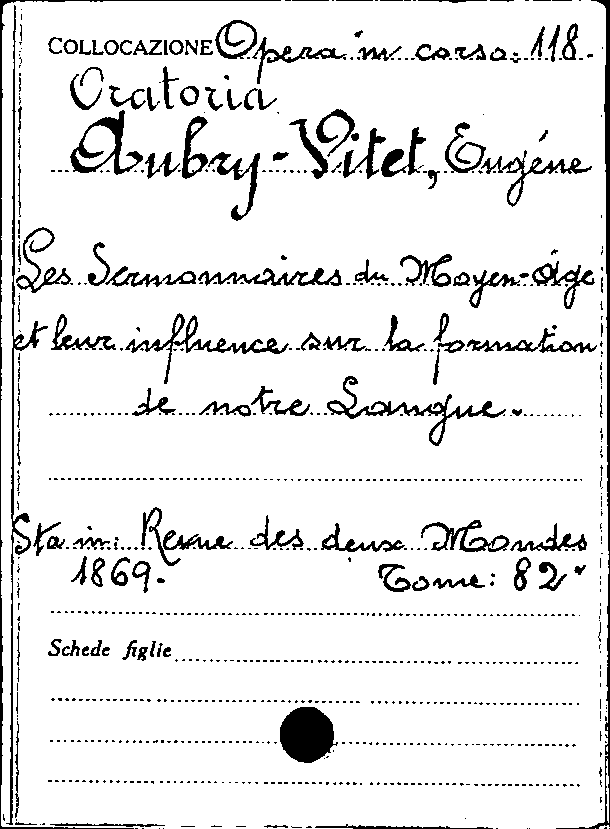 COLLOCAZIONE Opera in corso: 118.
Oratoria
Aubry-Vitet, Eugéne
Les Sermonnaires du Moyen-Âge
et leur influence sur la formation
de notre Langue.
Sta in: Revue des deux Mondes
1869. Tome: 82°
Schede figlie